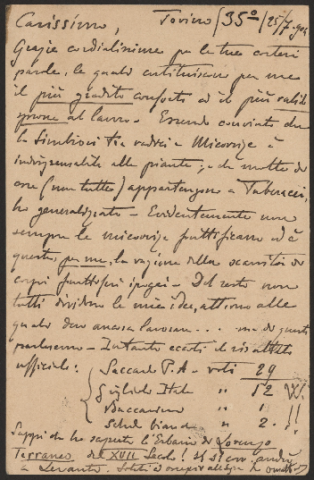 Carissimo, Torino (35°/25/7.905
Grazie cordialissime per le tue cortesi
parole, le quali costituiscono per me
il più gradito conforto ed il più valido
sprone al lavoro - Essendo convinto che
la Simbiosi tra radici e Micorize è
indispensabile alle piante, che molte di
esse (non tutte) appartengono a Tuberacei,
ho generalizzato - Evidentemente non
sempre le micorize fruttificano ed è
questa, per me, la ragione della scarsità dei
corpi fruttiferi ipogei - Del resto non
tutti dividono le mie idee, attorno alle
quali devo ancora lavorare... ma di questo
parleremo - Intanto eccoti il risultato
ufficiale: Saccardo P.A - voti 29
Ital " 12 W.
Baccarini " 1 !!
Schede bianche " 2 - !!
Sappi che ho scoperto l'Erbario di Lorenzo
Terraneo del XVII Secolo! Il 31 corr. andrò
a Levanto.